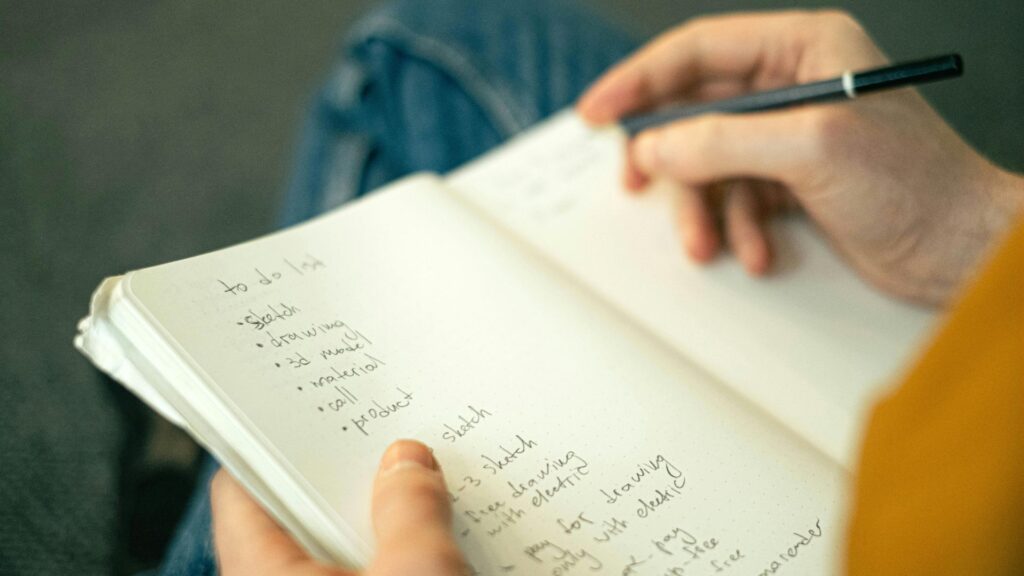 to do list
• sketch
• drawing
• 3d model
• material
• call
• product
sketch
2-3 sketch
- free drawing
with electric
pay for drawing
only with electric
pay
free